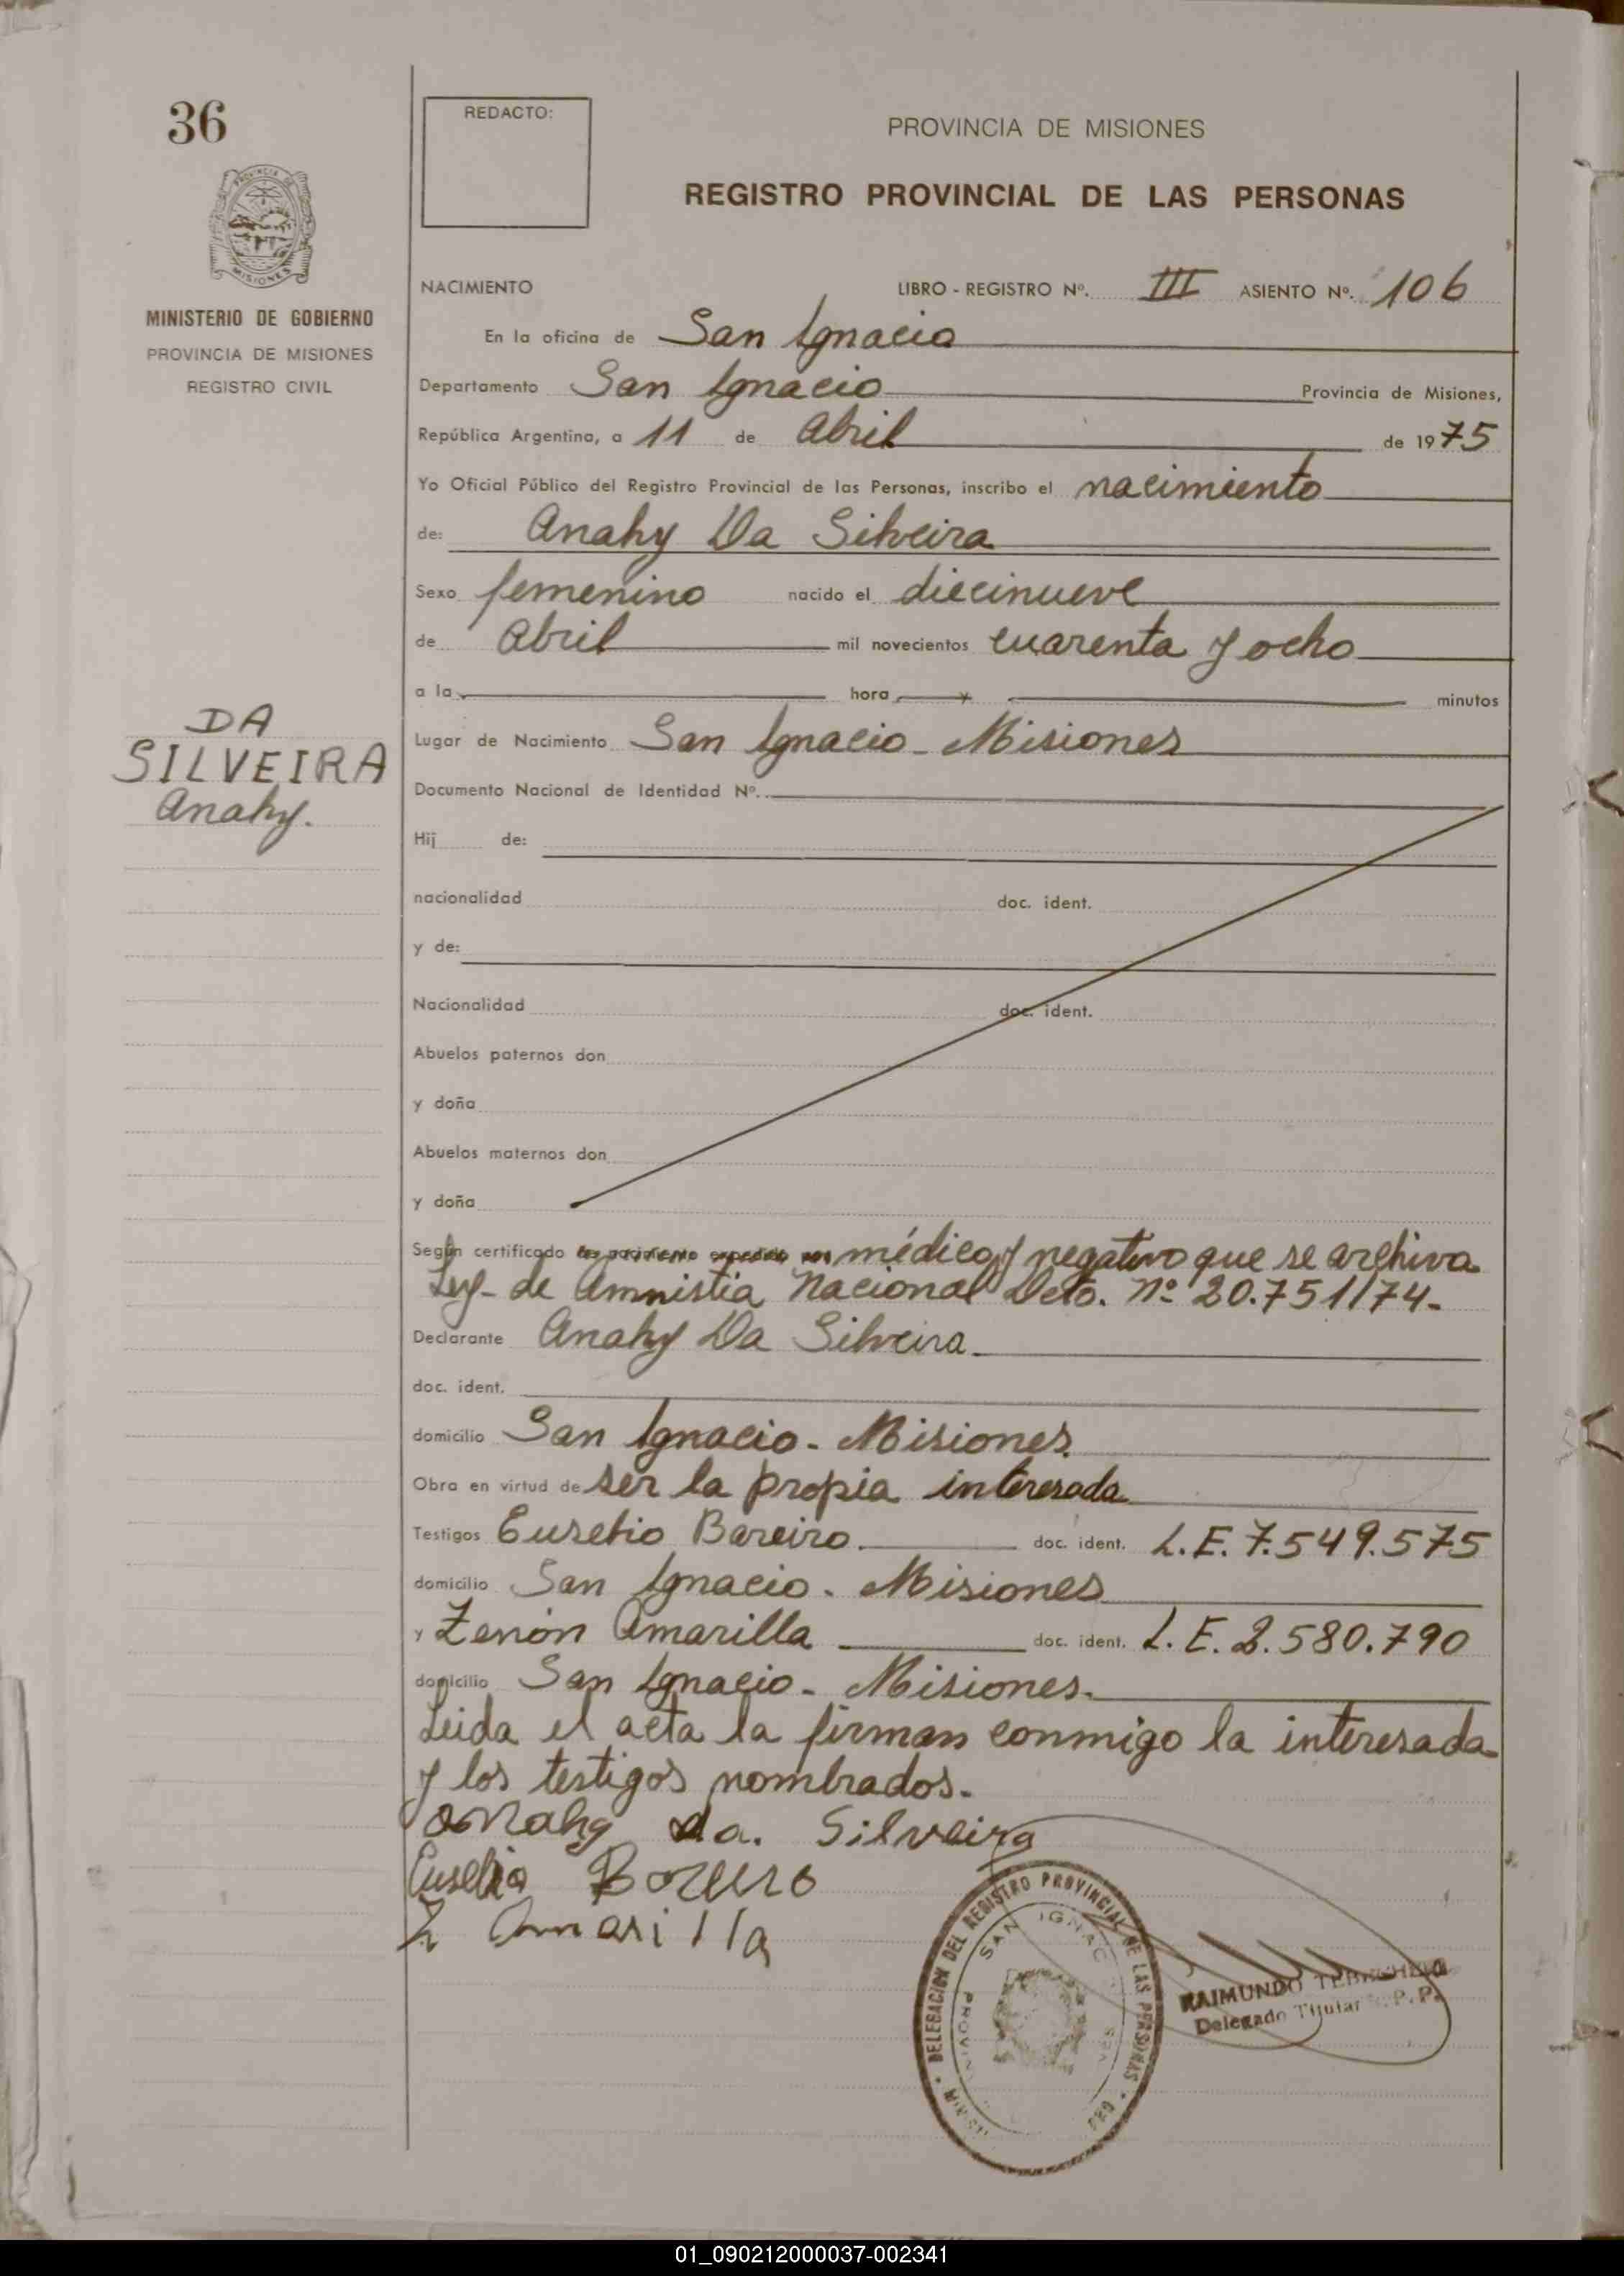 36
REDACTO:
PROVINCIA DE MISIONES
REGISTRO PROVINCIAL DE LAS PERSONAS
PROVINCIA DE
MISIONES
MINISTERIO DE GOBIERNO
PROVINCIA DE MISIONES
REGISTRO CIVIL
NACIMIENTO LIBRO - REGISTRO Nº. III ASIENTO Nº. 106
En la oficina de San Ignacio
Departamento San Ignacio Provincia de Misiones,
República Argentina, a 11 de Abril de 1975
Yo Oficial Público del Registro Provincial de las Personas, inscribo el nacimiento
de: Anahy Da Silveira
Sexo femenino nacido el diecinueve
de Abril mil novecientos cuarenta y ocho
a la hora y minutos
DA
SILVEIRA
Anahy.
Lugar de Nacimiento San Ignacio - Misiones
Documento Nacional de Identidad Nº.
Hij de:
nacionalidad doc. ident.
y de:
Nacionalidad doc. ident.
Abuelos paternos don
y doña
Abuelos maternos don
y doña
Según certificado de nacimiento expedido por médico y negativo que se archiva
Ley- de Amnistia Nacional Dcto. Nº 20.751/74.
Declarante Anahy Da Silveira
doc. ident.
domicilio San Ignacio - Misiones.
Obra en virtud de ser la propia interesada
Testigos Eusebio Bareiro. doc. ident. L.E. 7.549.575
domicilio San Ignacio - Misiones
y Zenón Amarilla doc. ident. L.E. 2.580.790
domicilio San Ignacio - Misiones.
Leida el acta la firman conmigo la interesada
y los testigos nombrados.
Anahy da. Silveira
Eusebio Boreiro
Z Amarilla
DELEGACION DEL REGISTRO PROVINCIAL DE LAS PERSONAS
SAN IGNACIO
RAIMUNDO
Delegado Titular R.P.P.
01_090212000037-002341